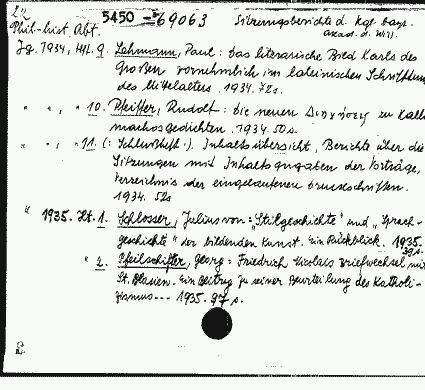 22
5450 - 69063
Sitzungsberichte d. Kgl. bayr.
Akad. d. Wiss.
Phil-hist. Abt.
Jg. 1934, Hft. 9. Lehmann, Paul: Das literarische Bild Karls des
Großen vornehmlich im lateinischen Schrifttum
des Mittelalters. 1934. 72 s.
" " , " 10. Pfeiffer, Rudolf: Die neuen Διηγήσεις zu Kalli
machosgedichten. 1934. 50 s.
" " , " 11. (: Schlußheft.). Inhaltsübersicht, Berichte über die
Sitzungen mit Inhaltsangaben der Vorträge,
Verzeichnis der eingelaufenen Druckschriften.
1934. 52 s
" 1935. Hft. 1. Schlosser, Julius von: "Stilgeschichte" und "Sprach-
geschichte" der bildenden Kunst. Ein Rückblick. 1935.
39 s.
" 2. Pfeilschifter, Georg: Friedrich Nicolais Briefwechsel mit
St. Blasien. Ein Beitrag zu seiner Beurteilung des Katholi-
zismus --- 1935. 97 s.